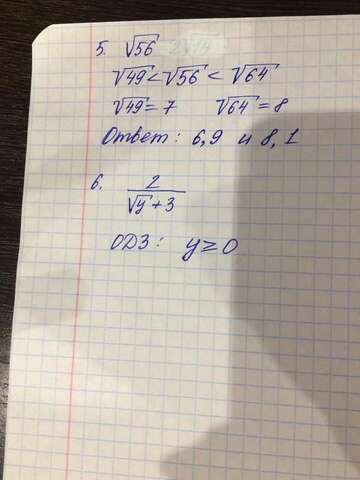 5. √56
√49 < √56 < √64
√49 = 7 √64 = 8
Ответ: 6,9 и 8,1
6. 2/(√y + 3)
ОДЗ: y ≥ 0